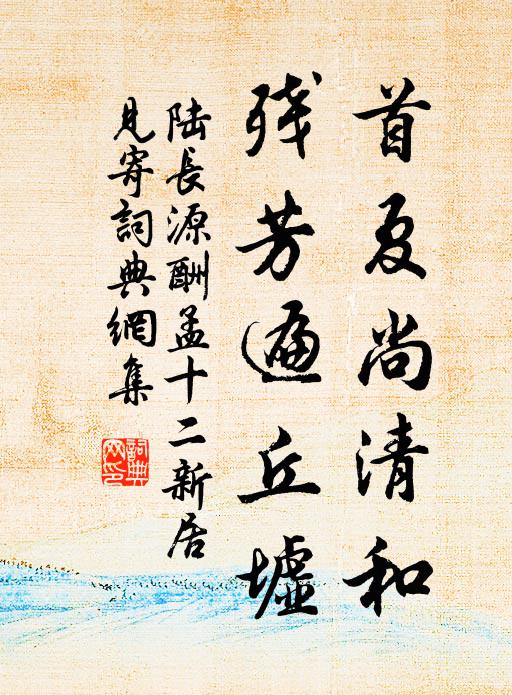 首夏尚清和
残芳遍丘墟
陆長源酬孟十二新居
見寄詞典網集
詞典
网印